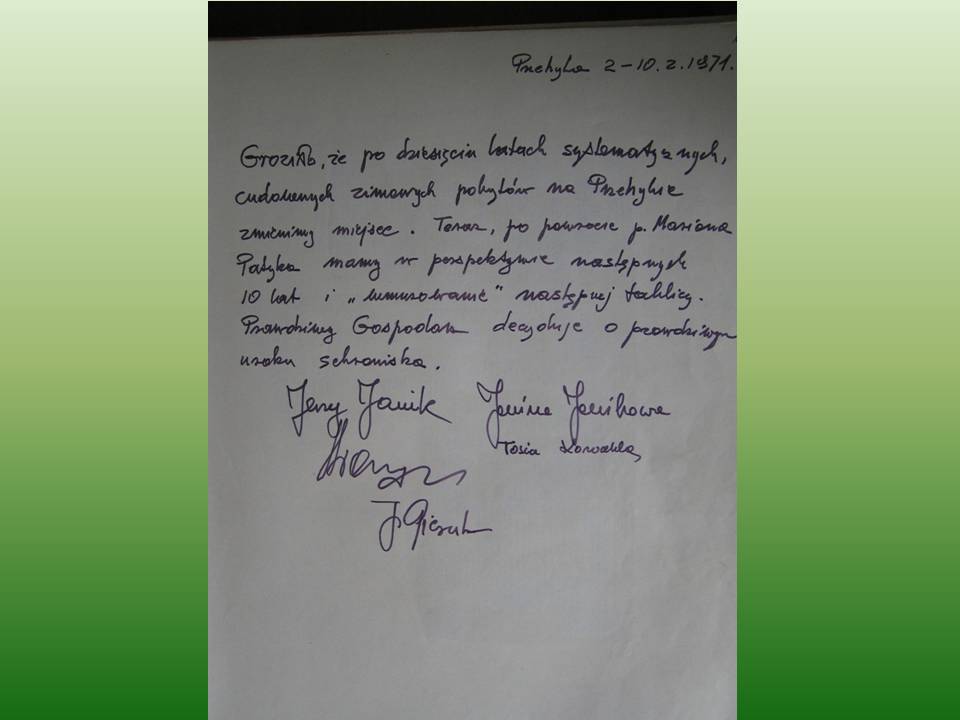 Przehyba 2-10.2.1971.
Groziło, że po dziesięciu latach systematycznych,
cudownych zimowych pobytów na Przehybie
zmienimy miejsce. Teraz, po powrocie p. Mariana
Patyka mamy w perspektywie następnych
10 lat i „wmurowanie" następnej tablicy.
Prawdziwy Gospodarz decyduje o prawdziwym
uroku schroniska.
Jerzy Janik Janina Janikowa
Tosia Kowalska
J